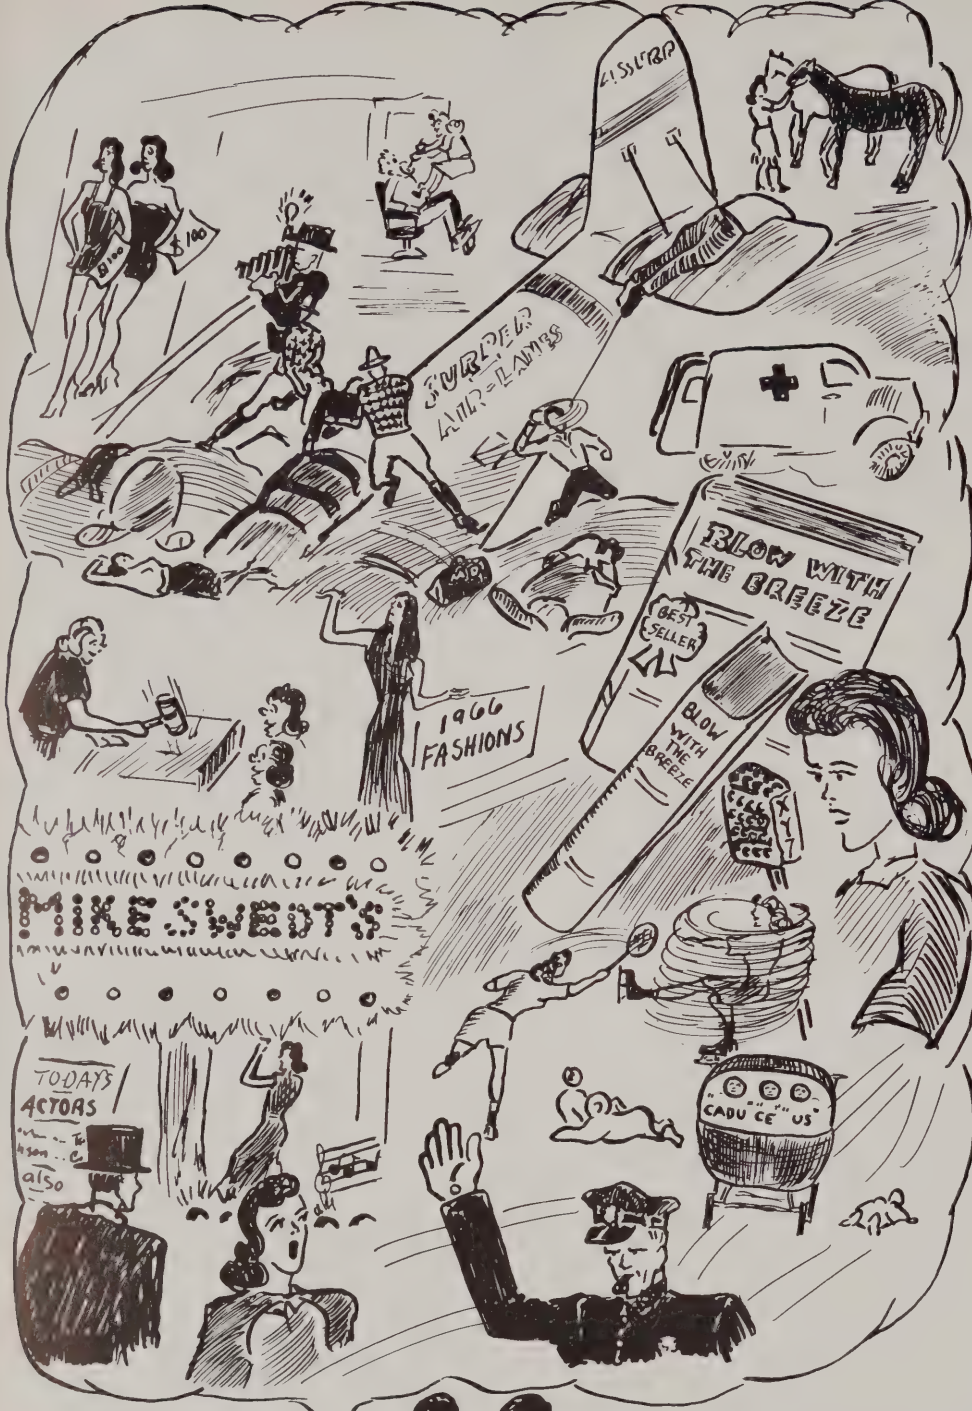 $100
$100
SURPER
AIR=LANES
MD
BLOW WITH
THE BREEZE
BEST
SELLER
BLOW
WITH
THE
BREEZE
1966
FASHIONS
XYZ
MIKE SWEDT'S
TODAYS
ACTORS
also
"CADU"CE""US"